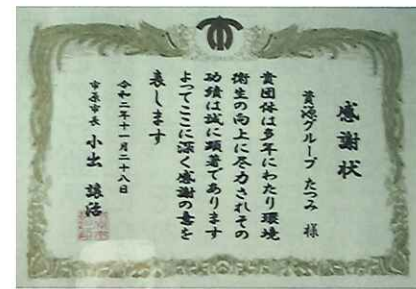 感謝状
資源グループ たつみ 様
貴団体は多年にわたり環境
衛生の向上に尽力されその
功績は誠に顕著であります
よってここに深く感謝の意を
表します
令和二年十一月二十八日
市原市長 小出 譲治